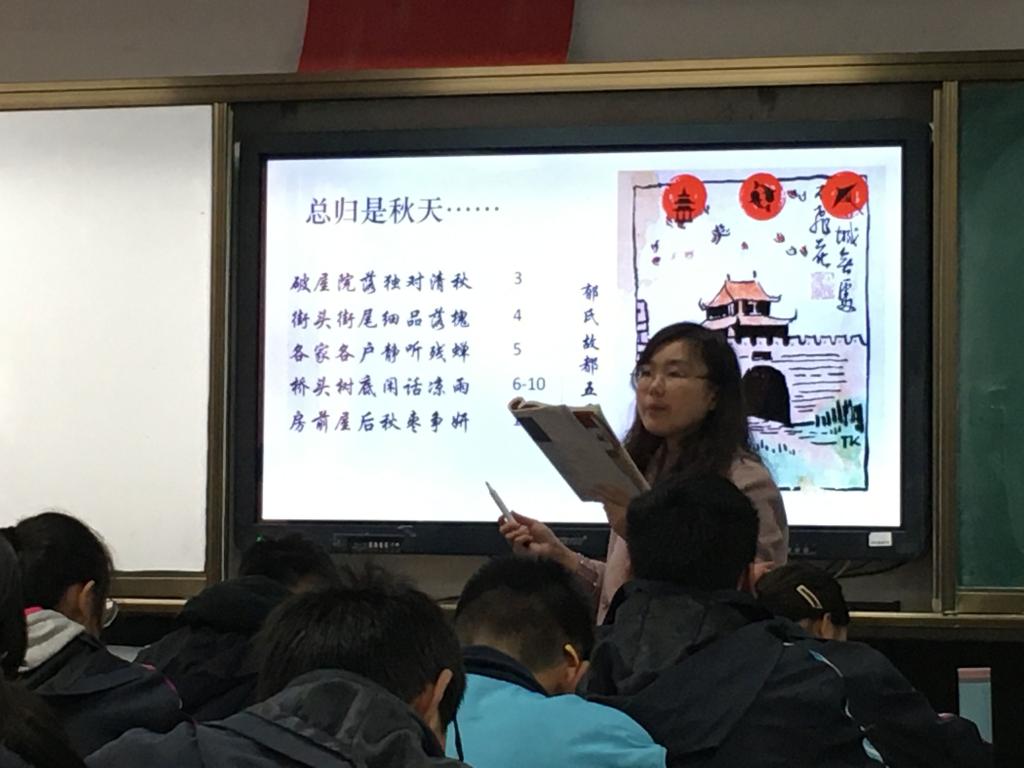 总归是秋天……
破屋院落独对清秋 3
街头街尾细品落槐 4
各家各户静听残蝉 5
桥头树底闲话凉雨 6-10
房前屋后秋枣争妍
郁民故都五
城无處
不飛花
TK